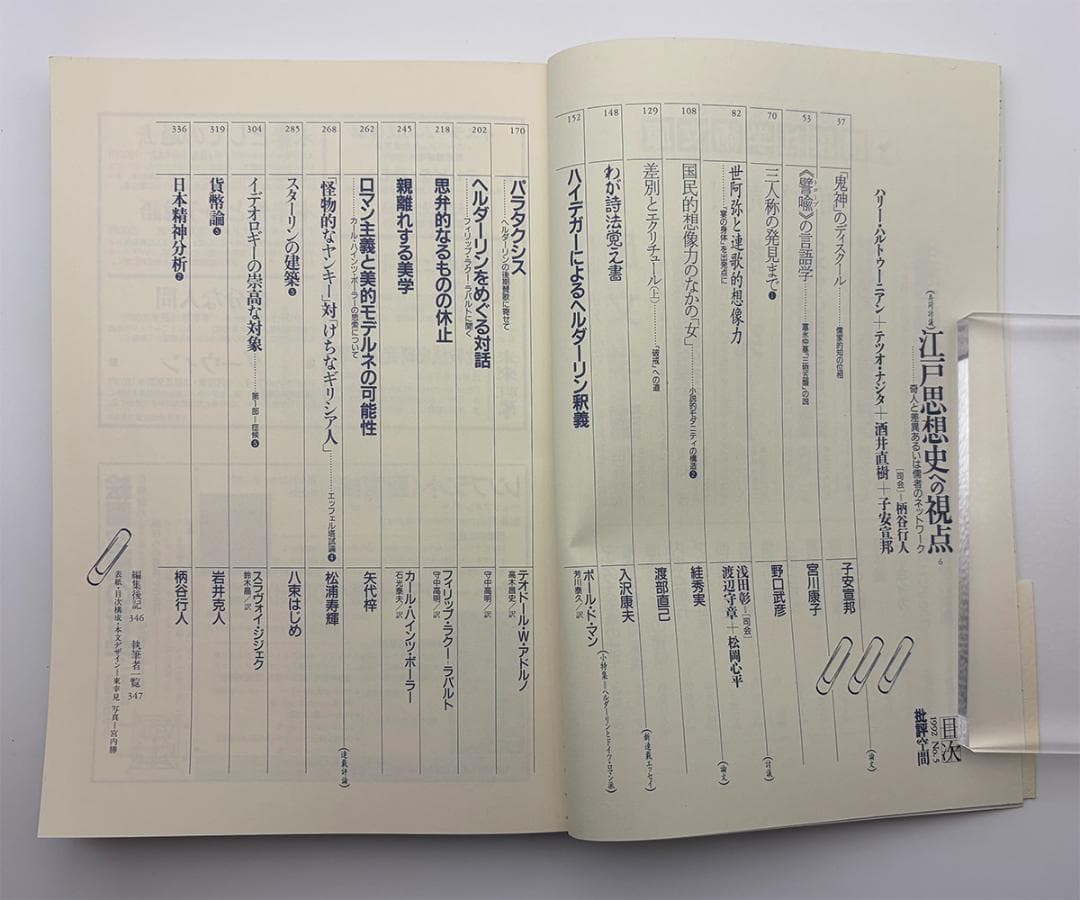 目次
批評空間
1992 No.5
〈共同討議〉
江戸思想史への視点
6
奇人と差異あるいは儒者のネットワーク
[司会]―柄谷行人
ハリー・ハルトゥーニアン＋テツオ・ナジタ＋酒井直樹＋子安宣邦
(論文)
37 「鬼神」のディスクール………儒家的知の位相 子安宣邦
53 《譬喩》の言語学………富永仲基「三物五類」の説 宮川康子
70 三人称の発見まで❶ 野口武彦
(討議)
82 世阿弥と連歌的想像力
………「宴の身体」を出発点に
浅田彰―[司会]
渡辺守章＋松岡心平
(論文)
108 国民的想像力のなかの「女」………小説的モダニティの構造❷ 絓秀実
129 差別とエクリチュール(上)………「破戒」への道 渡部直己
(新連載エッセイ)
148 わが詩法覚え書 入沢康夫
(小特集―ヘルダーリンとドイツ・ロマン派)
152 ハイデガーによるヘルダーリン釈義 ポール・ド・マン
芳川泰久／訳
170 パラタクシス
………ヘルダーリンの後期讃歌に寄せて
テオドール・W・アドルノ
高木昌史／訳
202 ヘルダーリンをめぐる対話
………フィリップ・ラクー-ラバルトに聞く
守中高明／訳
218 思弁的なるものの休止 フィリップ・ラクー-ラバルト
守中高明／訳
245 親離れする美学 カール・ハインツ・ボーラー
石光泰夫／訳
262 ロマン主義と美的モデルネの可能性
………カール・ハインツ・ボーラーの思索について
矢代梓
(連載評論)
268 「怪物的なヤンキー」対「けちなギリシア人」………エッフェル塔試論❹ 松浦寿輝
285 スターリンの建築❸ 八束はじめ
304 イデオロギーの崇高な対象………第Ⅰ部―症候❺ スラヴォイ・ジジェク
鈴木晶／訳
319 貨幣論❺ 岩井克人
336 日本精神分析❷ 柄谷行人
編集後記 346 執筆者一覧 347
表紙・目次構成・本文デザイン―東幸見 写真―宮内勝